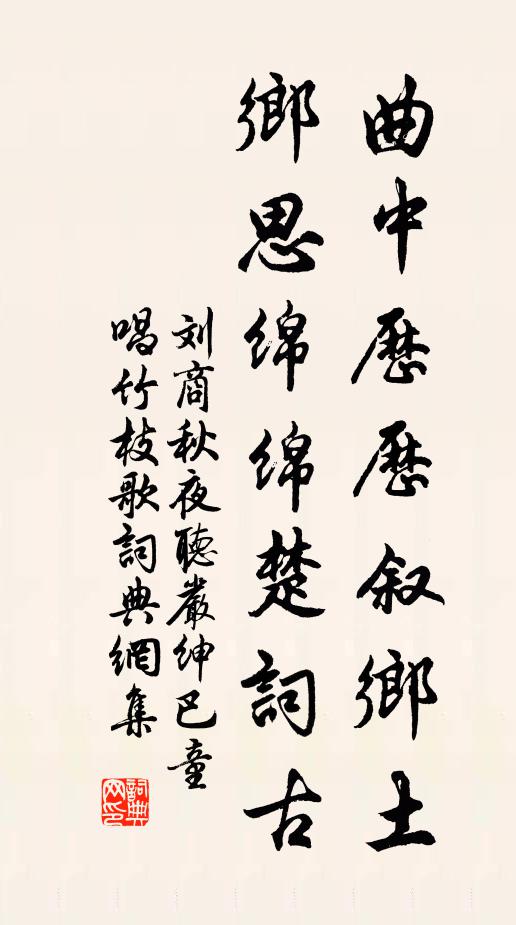 曲中歷歷叙鄉土
鄉思綿綿楚詞古
刘商秋夜聽嚴紳巴童
唱竹枝歌詞典網集
詞典
网印